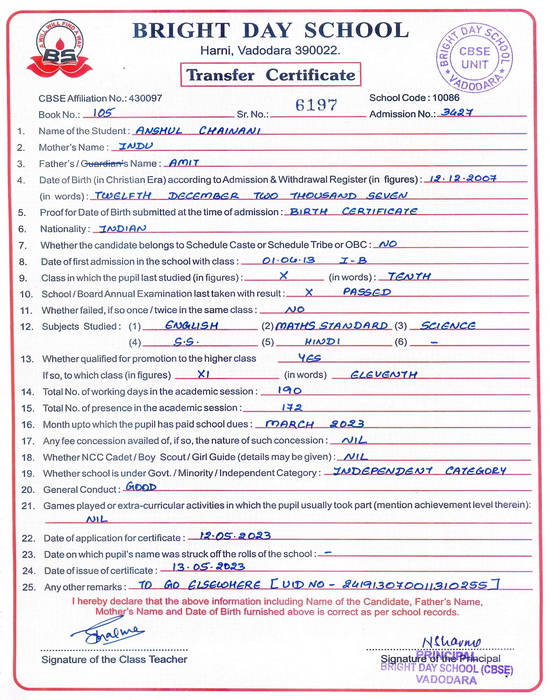 A WILL WILL FIND A WAY
BS
BRIGHT DAY SCHOOL
Harni, Vadodara 390022.
Transfer Certificate
BRIGHT DAY SCHOOL
CBSE
UNIT
VADODARA
CBSE Affiliation No.: 430097 School Code : 10086
Book No.: 105 Sr. No.: 6197 Admission No.: 3427
1. Name of the Student : ANSHUL CHAINANI
2. Mother's Name : INDU
3. Father's / Guardian's Name : AMIT
4. Date of Birth (in Christian Era) according to Admission & Withdrawal Register (in figures) : 12.12.2007
(in words) : TWELFTH DECEMBER TWO THOUSAND SEVEN
5. Proof for Date of Birth submitted at the time of admission : BIRTH CERTIFICATE
6. Nationality : INDIAN
7. Whether the candidate belongs to Schedule Caste or Schedule Tribe or OBC : NO
8. Date of first admission in the school with class : 01.04.13 I-B
9. Class in which the pupil last studied (in figures) : X (in words) : TENTH
10. School / Board Annual Examination last taken with result : X PASSED
11. Whether failed, if so once / twice in the same class : NO
12. Subjects Studied : (1) ENGLISH (2) MATHS STANDARD (3) SCIENCE
(4) S.S. (5) HINDI (6) –
13. Whether qualified for promotion to the higher class YES
If so, to which class (in figures) XI (in words) ELEVENTH
14. Total No. of working days in the academic session : 190
15. Total No. of presence in the academic session : 172
16. Month upto which the pupil has paid school dues : MARCH 2023
17. Any fee concession availed of, if so, the nature of such concession : NIL
18. Whether NCC Cadet / Boy Scout / Girl Guide (details may be given) : NIL
19. Whether school is under Govt. / Minority / Independent Category : INDEPENDENT CATEGORY
20. General Conduct : GOOD
21. Games played or extra-curricular activities in which the pupil usually took part (mention achievement level therein):
NIL
22. Date of application for certificate : 12.05.2023
23. Date on which pupil's name was struck off the rolls of the school : –
24. Date of issue of certificate : 13.05.2023
25. Any other remarks : TO GO ELSEWHERE [UID NO - 241913070011310255]
I hereby declare that the above information including Name of the Candidate, Father's Name,
Mother's Name and Date of Birth furnished above is correct as per school records.
NSharma
Signature of the Class Teacher Signature of the Principal
PRINCIPAL
BRIGHT DAY SCHOOL (CBSE)
VADODARA